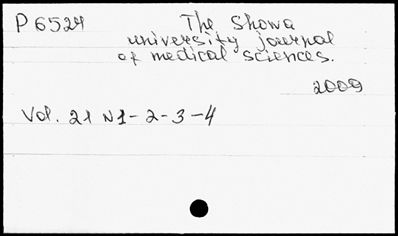 P 6524 The Showa
university journal
of medical sciences.
2009
Vol. 21 N1-2-3-4